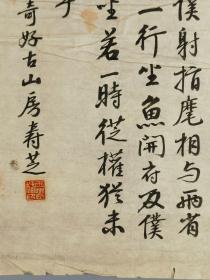 僕射指麾相与両省
一行坐魚開府及僕
坐若一時從權猶未
于
奇好古山房寿芝